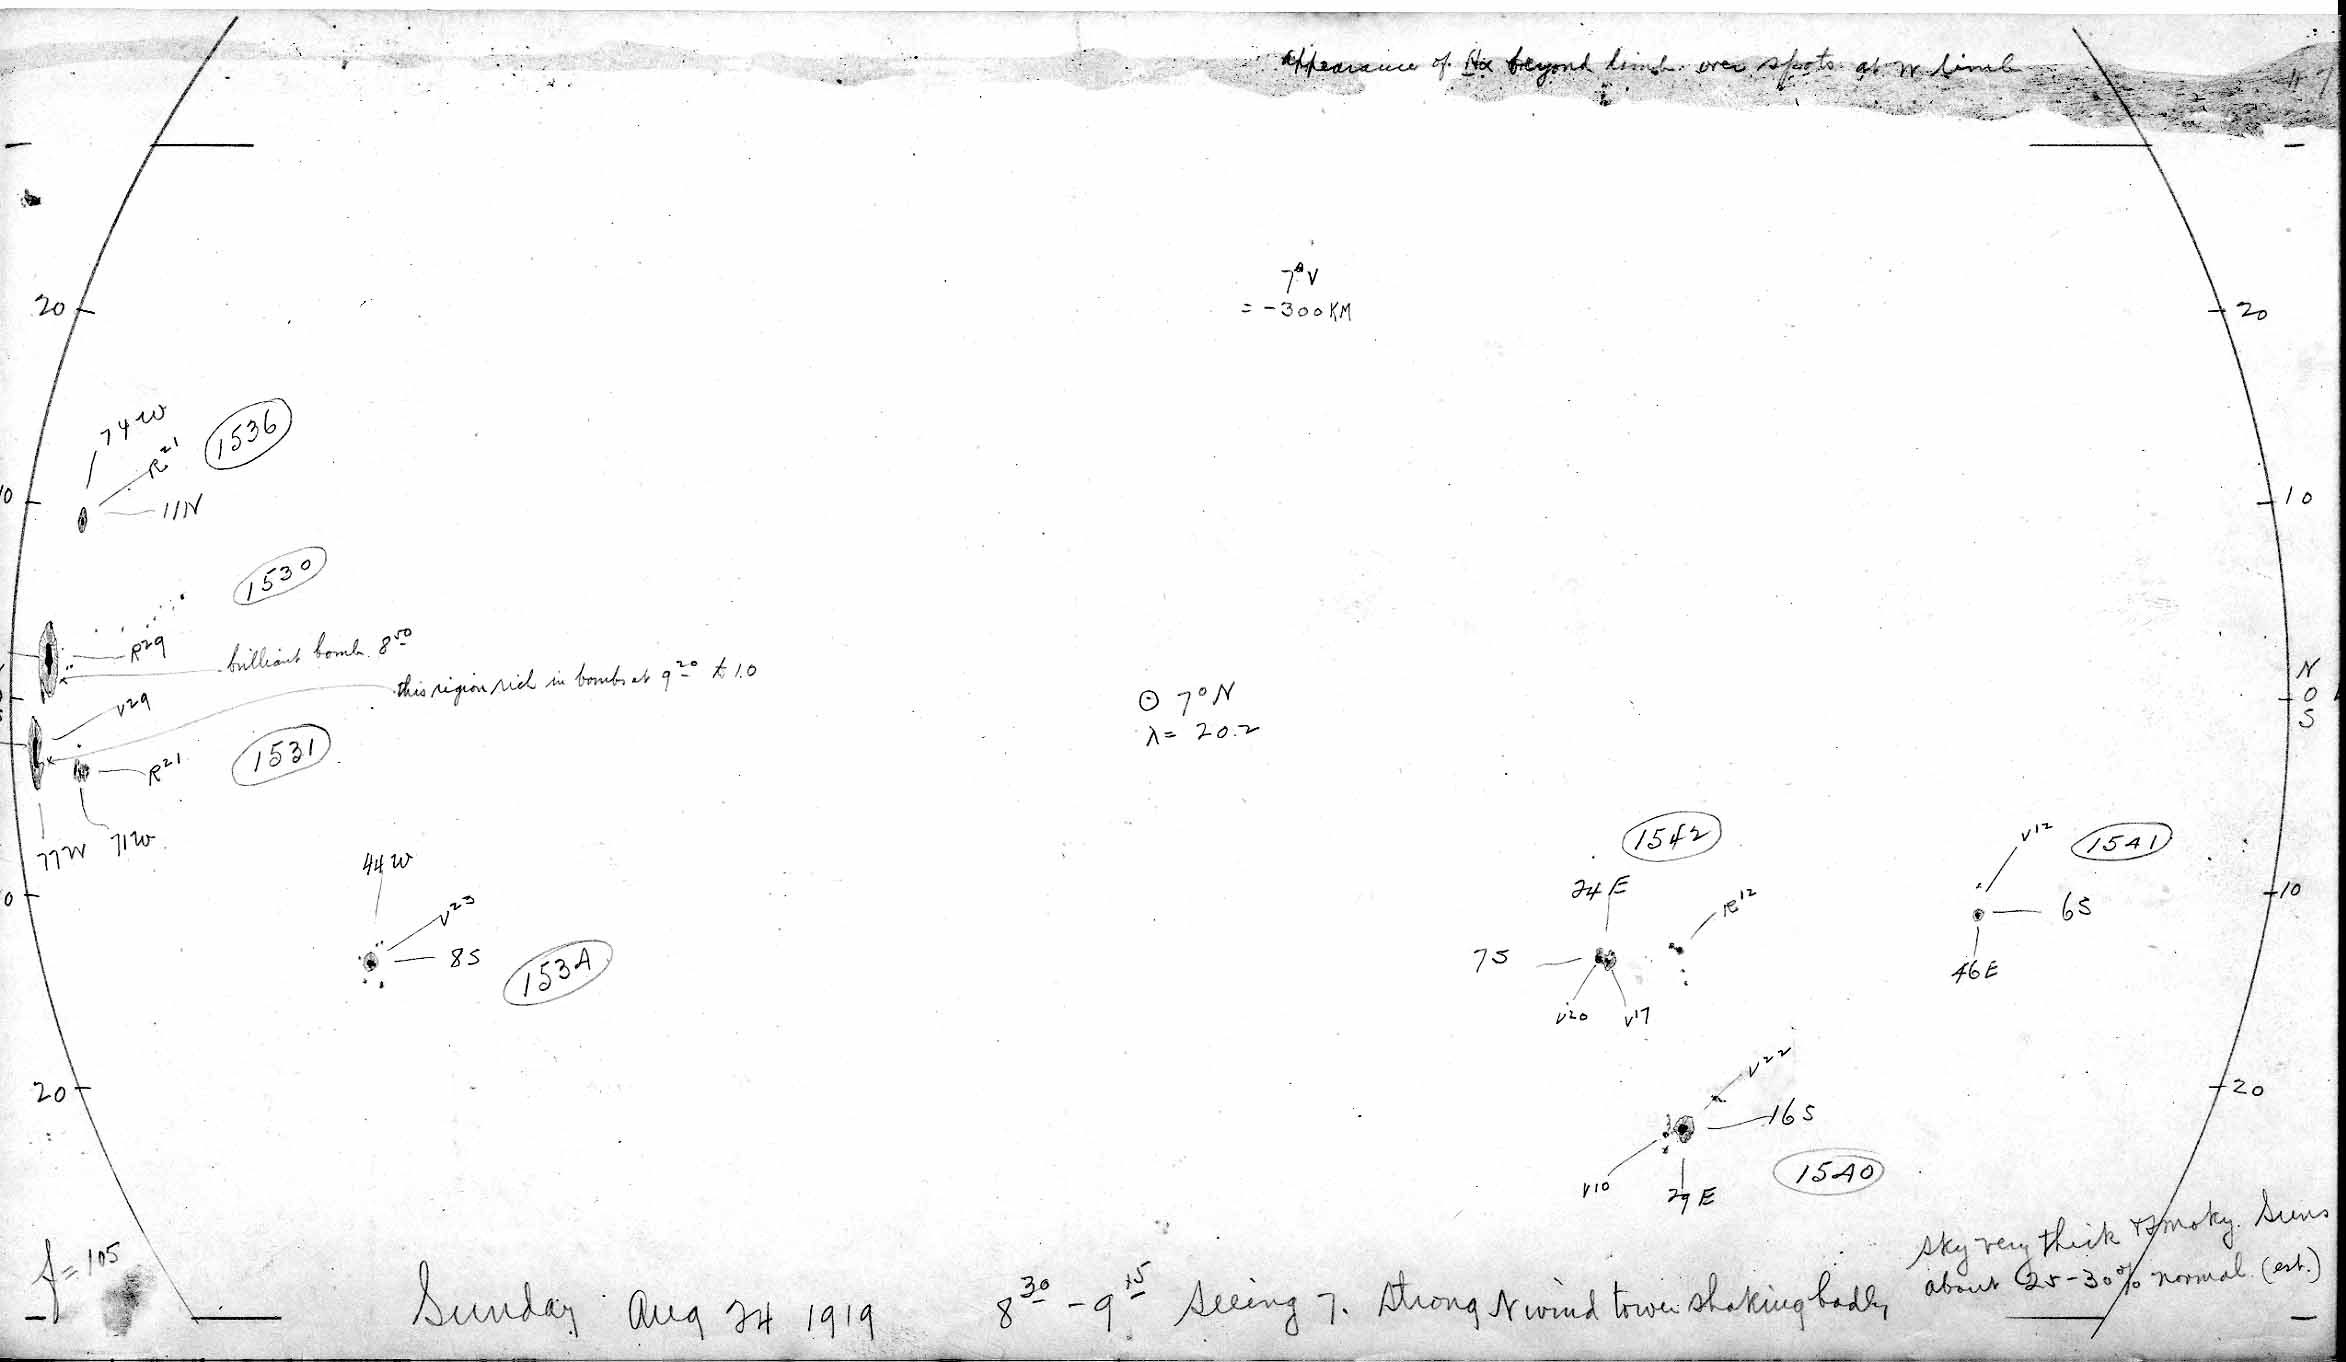 appearance of Hα beyond limb over spots at W limb
7°V
= -300 KM
20
20
74W
R21
1536
10
11N
10
1530
R29
brilliant bomb 8 50
this region rich in bombs at 9 20 to 10
V29
N
0
S
⊙ 7° N
λ= 20.2
R21
1531
77W
71W
44W
V23
8S
1534
1542
24E
R12
7S
V20
V17
V12
1541
10
6S
46E
0
20
20
V22
16S
V10
29E
1540
f=105
Sunday Aug 24 1919
8 30 - 9 15 Seeing 7. Strong N wind tower shaking badly
Sky very thick & smoky. Suns
about 25-30% normal (est.)